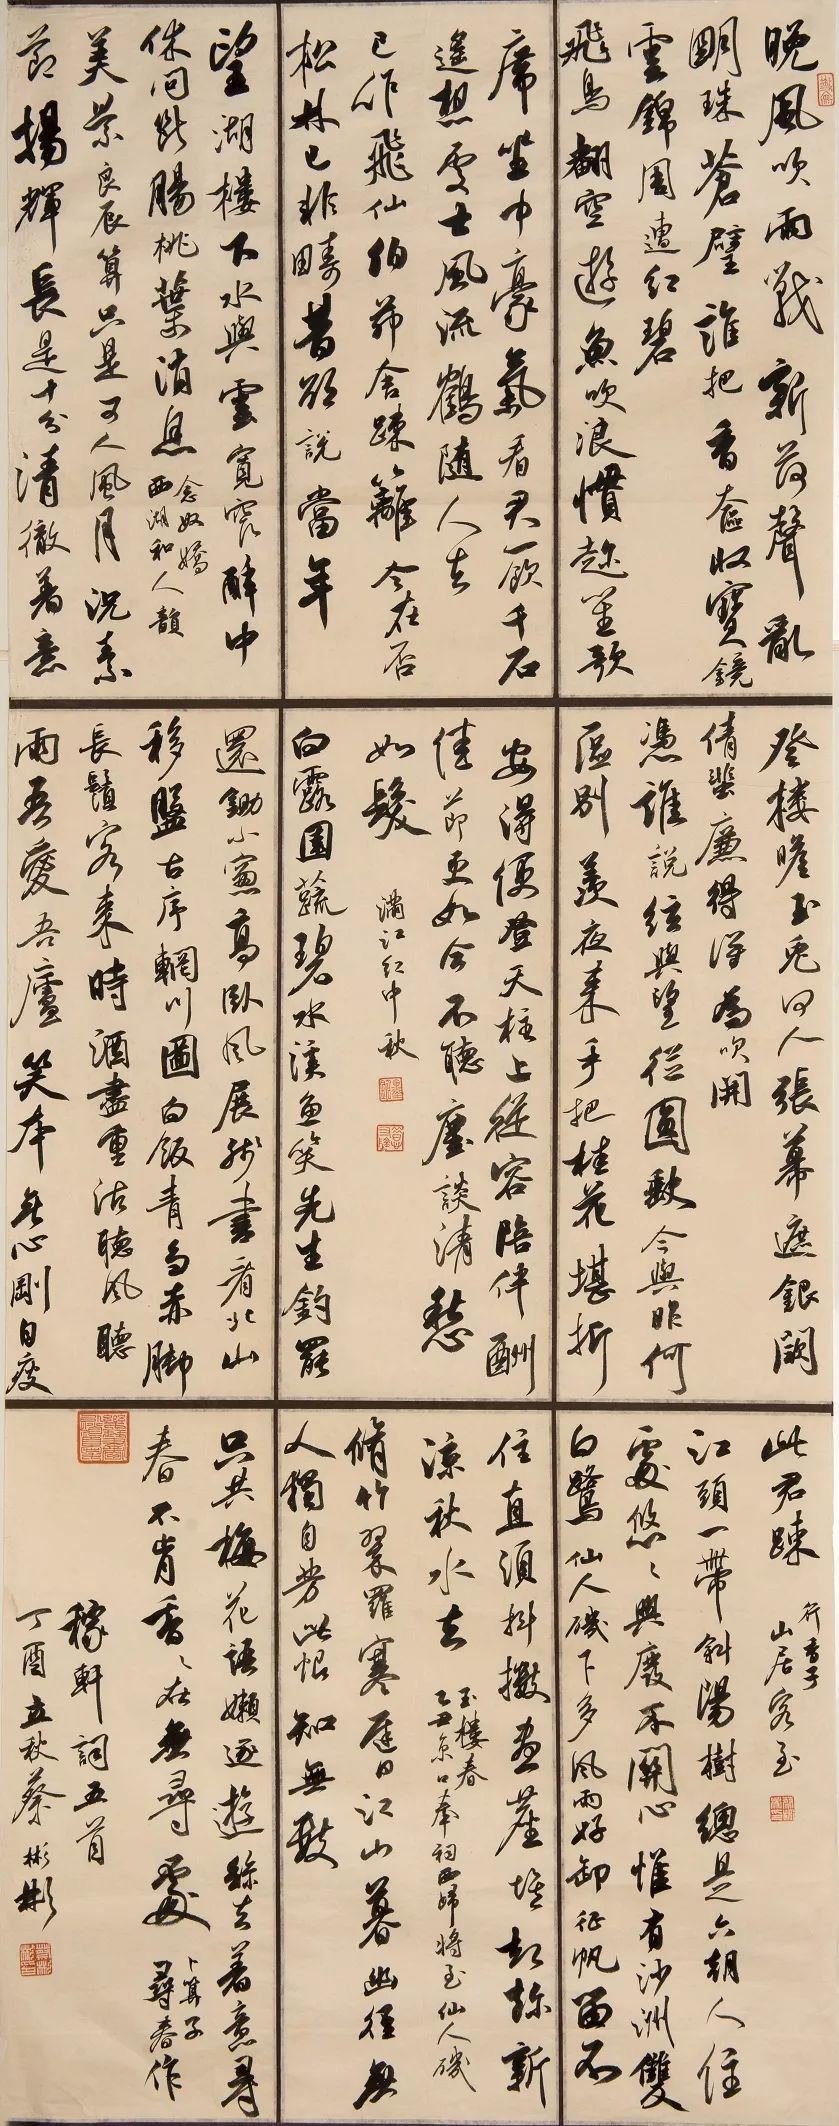 晚風吹雨戰新荷聲亂
明珠蒼璧誰把香奩收寶鏡
雲錦周遭紅碧
飛鳥翻空遊魚吹浪慣趁笙歌
席坐中豪氣看君一飲千石
遙想處士風流鶴隨人去
已作飛仙伯茆舍疎籬今在否
松林已非疇昔欲說當年
望湖樓下水與雲寬窄醉中
休問斷腸桃葉消息
念奴嬌
西湖和人韻
美景良辰算只是可人風月況素
節揚輝長是十分清徹著意
登樓瞻玉兔何人張幕遮銀闕
倩蜚廉得得為吹開
憑誰說絃與望從圓缺今與昨何
區別羨夜來手把桂花堪折
安得便登天柱上從容陪伴酬
佳節更如今不聽麈談清愁
如髮
滿江紅中秋
白露園蔬碧水溪魚笑先生釣罷
還鋤小窗高臥風展殘書看北山
移盤古序輞川圖白飯青芻赤腳
長鬚客來時酒盡重沽聽風聽
雨吾愛吾廬笑本無心剛自瘦
此君疎
行香子
山居客至
江頭一帶斜陽樹總是六朝人住
處悠〻興廢不關心惟有沙洲雙
白鷺仙人磯下多風雨好卸征帆留不
住直須抖擻盡塵埃却趁新
涼秋水去
玉樓春
乙丑京口奉祠西歸將至仙人磯
脩竹翠羅寒遲日江山暮幽徑無
人獨自芳此恨知無數
只共梅花語嬾逐遊絲去著意尋
春不肯香〻在無尋處
卜算子
尋春作
稼軒詞五首
丁酉立秋蔡彬彬